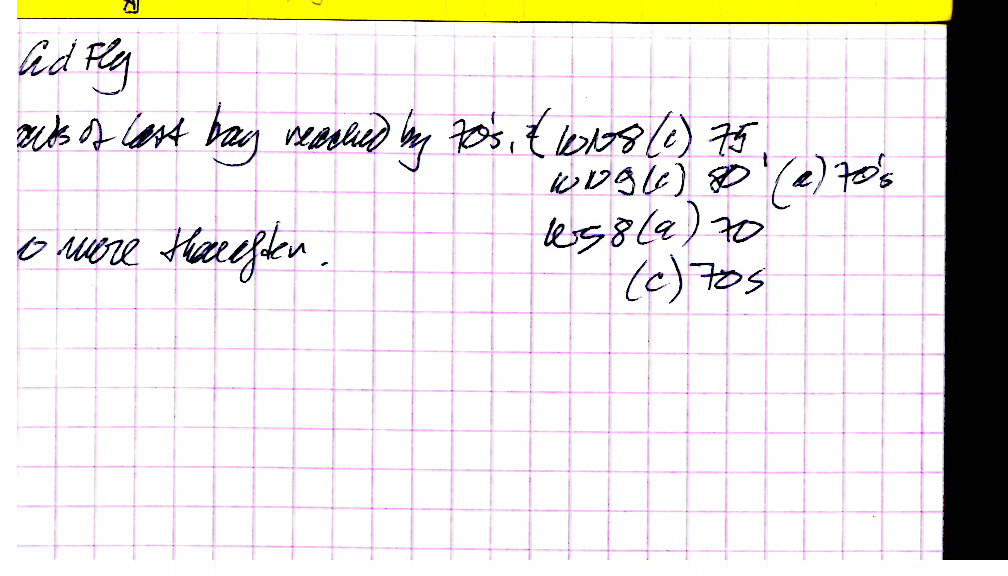 Ad Fly
of last bay reached by 70's. (WN8 (c) 75
WN9 (c) 80 (a) 70's
WS8 (a) 70
(c) 70s
more thereafter.